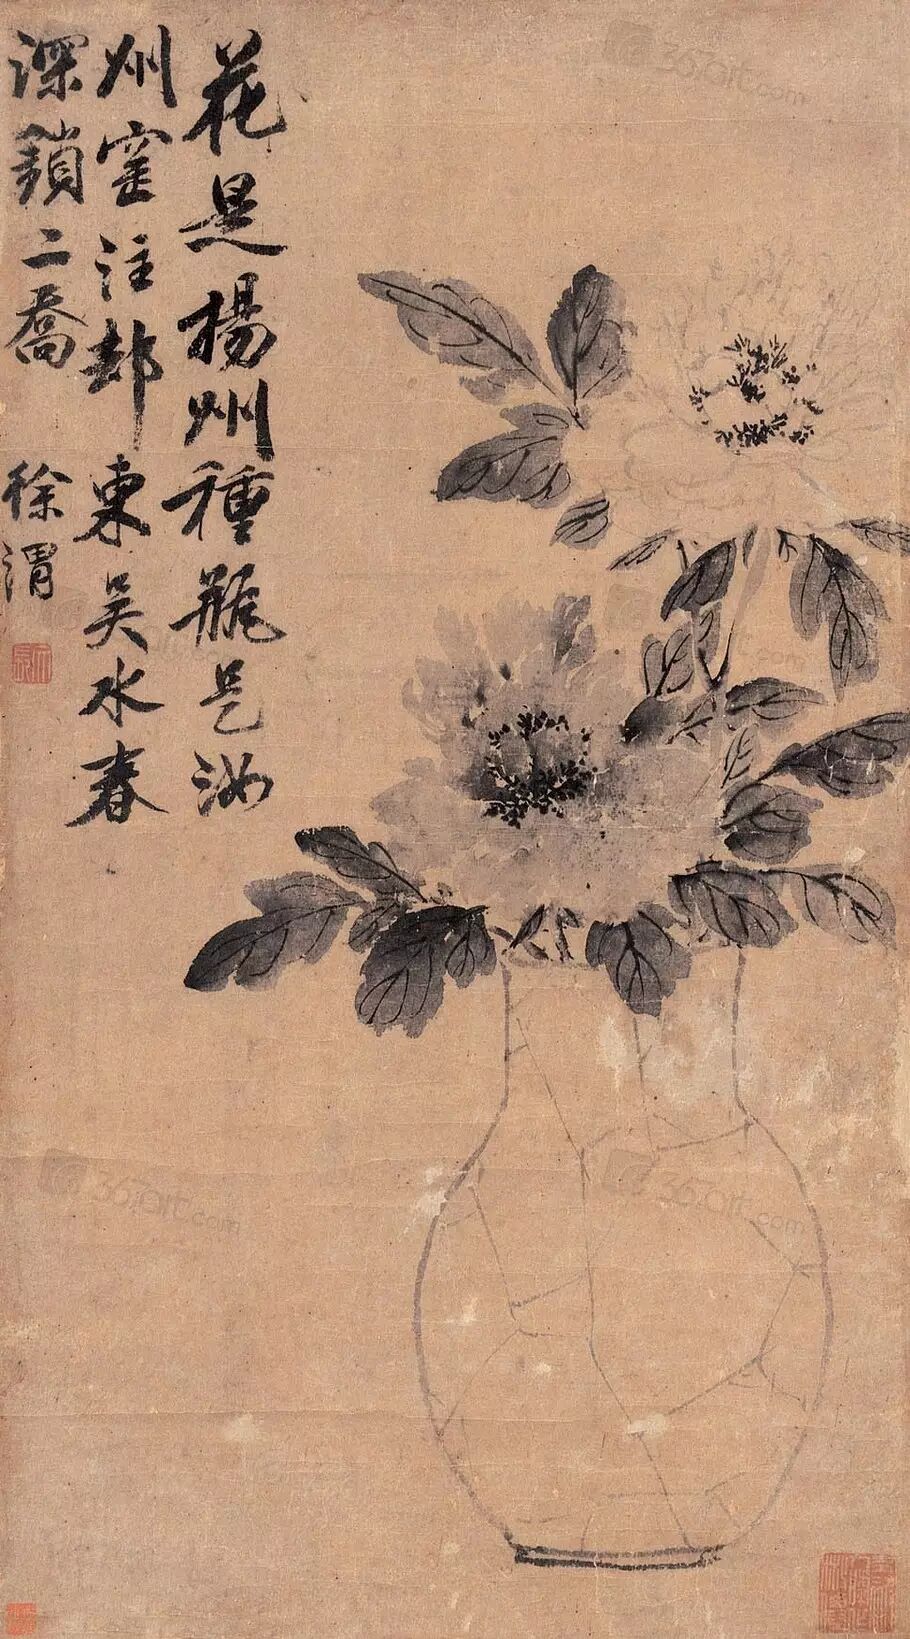 花是揚州種瓶是汝
州窑注却東吴水春
深鎖二喬
徐渭
365art.com